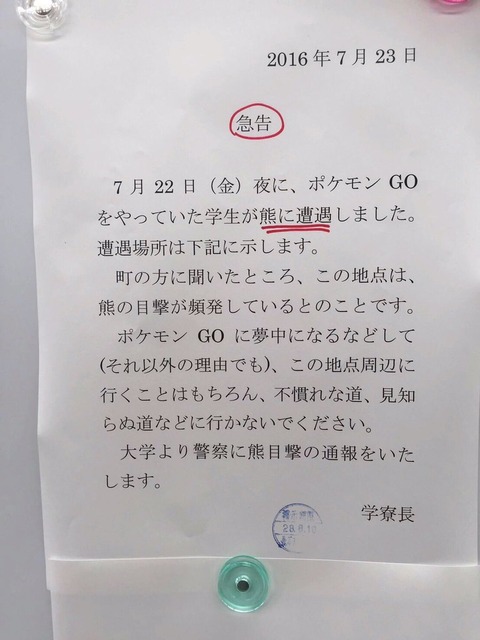 2016年7月23日
急告
7月22日（金）夜に、ポケモンGO
をやっていた学生が熊に遭遇しました。
遭遇場所は下記に示します。
町の方に聞いたところ、この地点は、
熊の目撃が頻発しているとのことです。
ポケモン GO に夢中になるなどして
(それ以外の理由でも)、この地点周辺に
行くことはもちろん、不慣れな道、見知
らぬ道などに行かないでください。
大学より警察に熊目撃の通報をいた
します。
学寮長